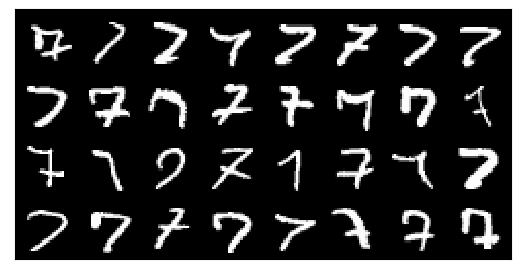 7 7 7 7 7 7 7 7
7 7 7 7 7 7 7 7
7 7 7 7 7 7 7
7 7 7 7 7 7 7 7